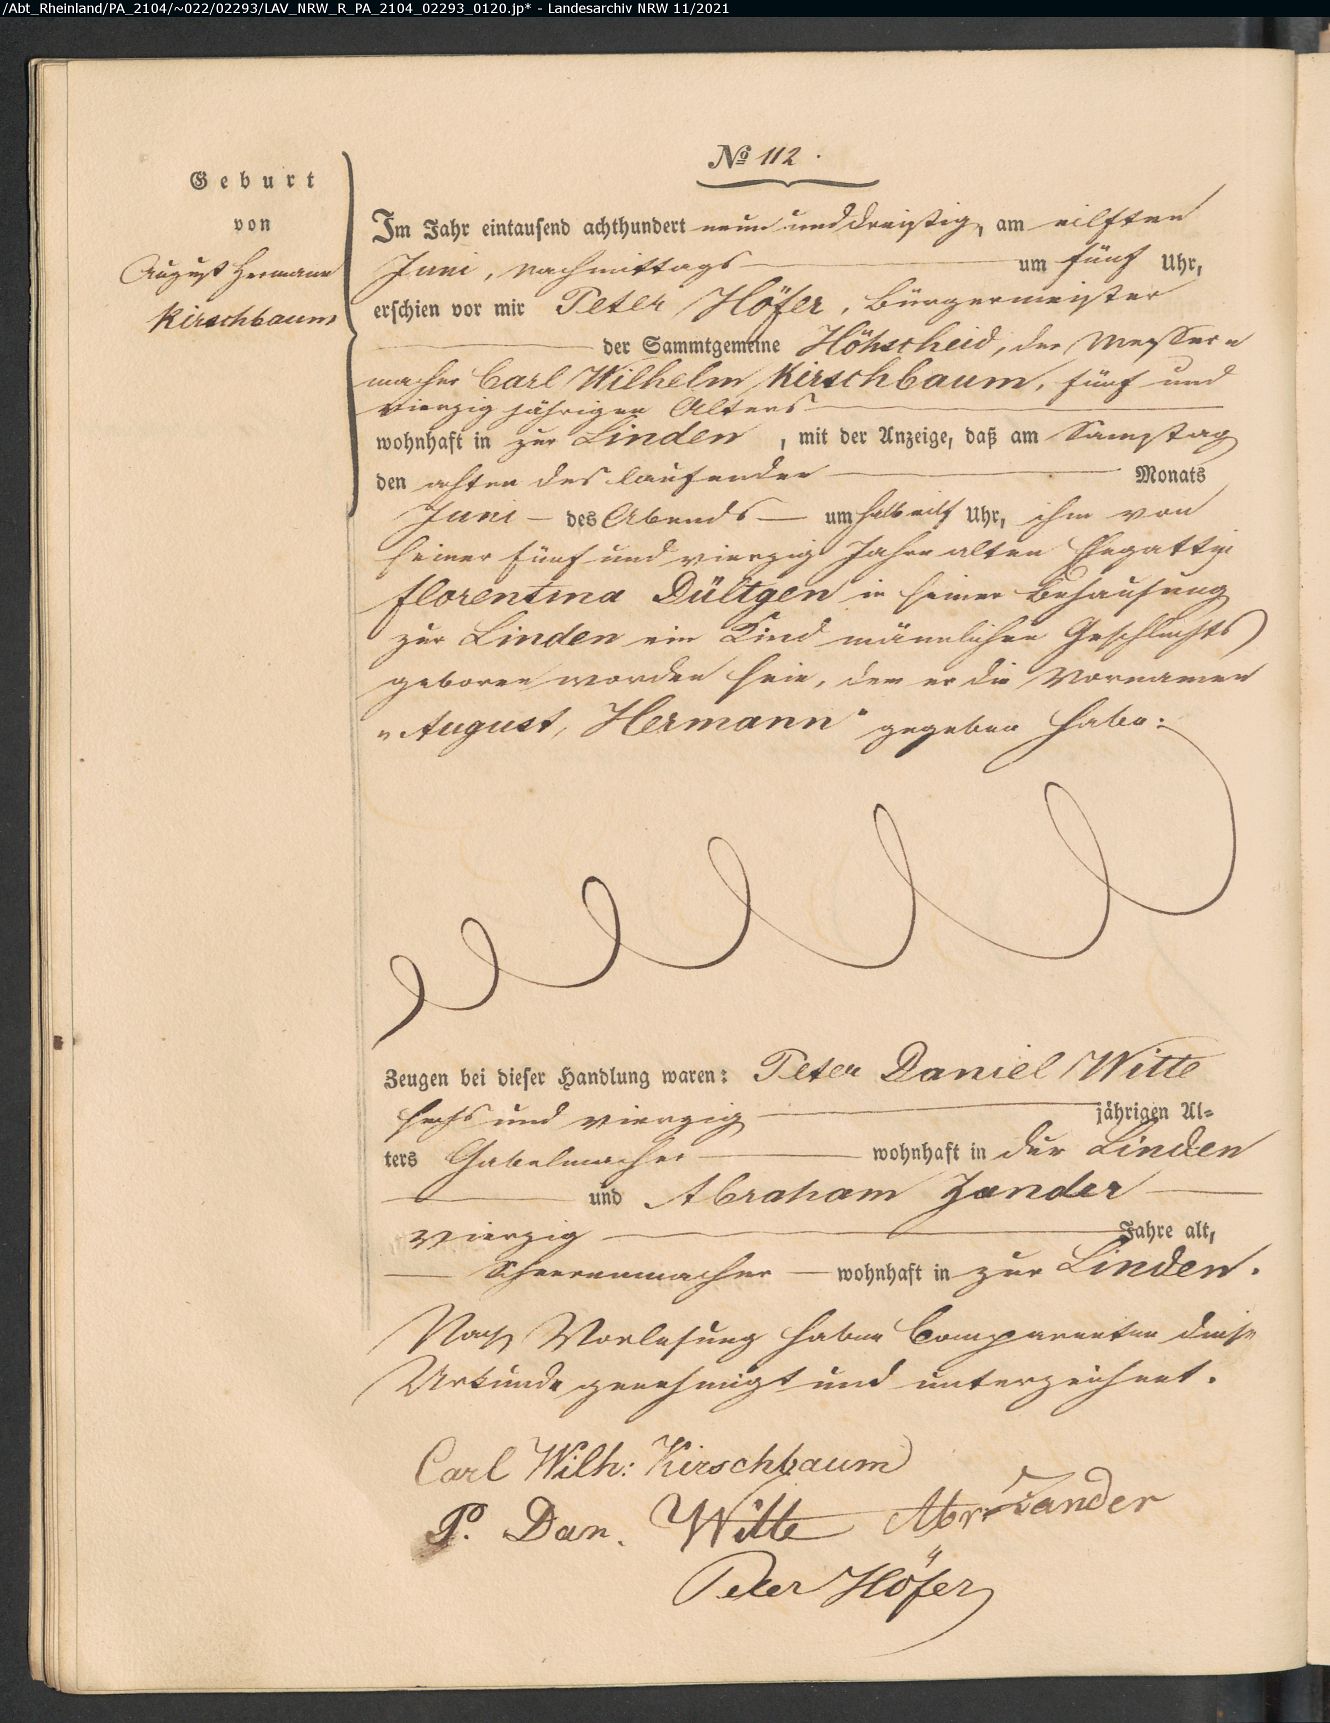 /Abt_Rheinland/PA_2104/~022/02293/LAV_NRW_R_PA_2104_02293_0120.jp* - Landesarchiv NRW 11/2021
№ 112.
Geburt
von
August Hermann
Kirschbaum
Im Jahr eintausend achthundert neun und dreißig, am eilften
Juni, nachmittags um fünf Uhr,
erschien vor mir Peter Höfer, Bürgermeister
der Sammtgemeine Höhscheid, der Messer=
macher Carl Wilhelm Kirschbaum, fünf und
vierzig jährigen Alters
wohnhaft in zur Linden, mit der Anzeige, daß am Samstag
den achten des laufenden Monats
Juni - des Abends - um halb eilf Uhr, ihm von
seiner fünf und vierzig Jahre alten Ehegattin
Florentina Dültgen in seiner Behausung
zur Linden ein Kind männlichen Geschlechts
geboren worden sein, dem er die Vornamen
„August, Hermann" gegeben habe:
Zeugen bei dieser Handlung waren: Peter Daniel Witte
sechs und vierzig jährigen Al=
ters Gabelmacher wohnhaft in der Linden
und Abraham Zander
vierzig Jahre alt,
Scheerenmacher wohnhaft in zur Linden.
Nach Vorlesung haben Comparenten diese
Urkunde genehmigt und unterzeichnet.
Carl Wilh: Kirschbaum
P. Dan. Witte Abr. Zander
Peter Höfer